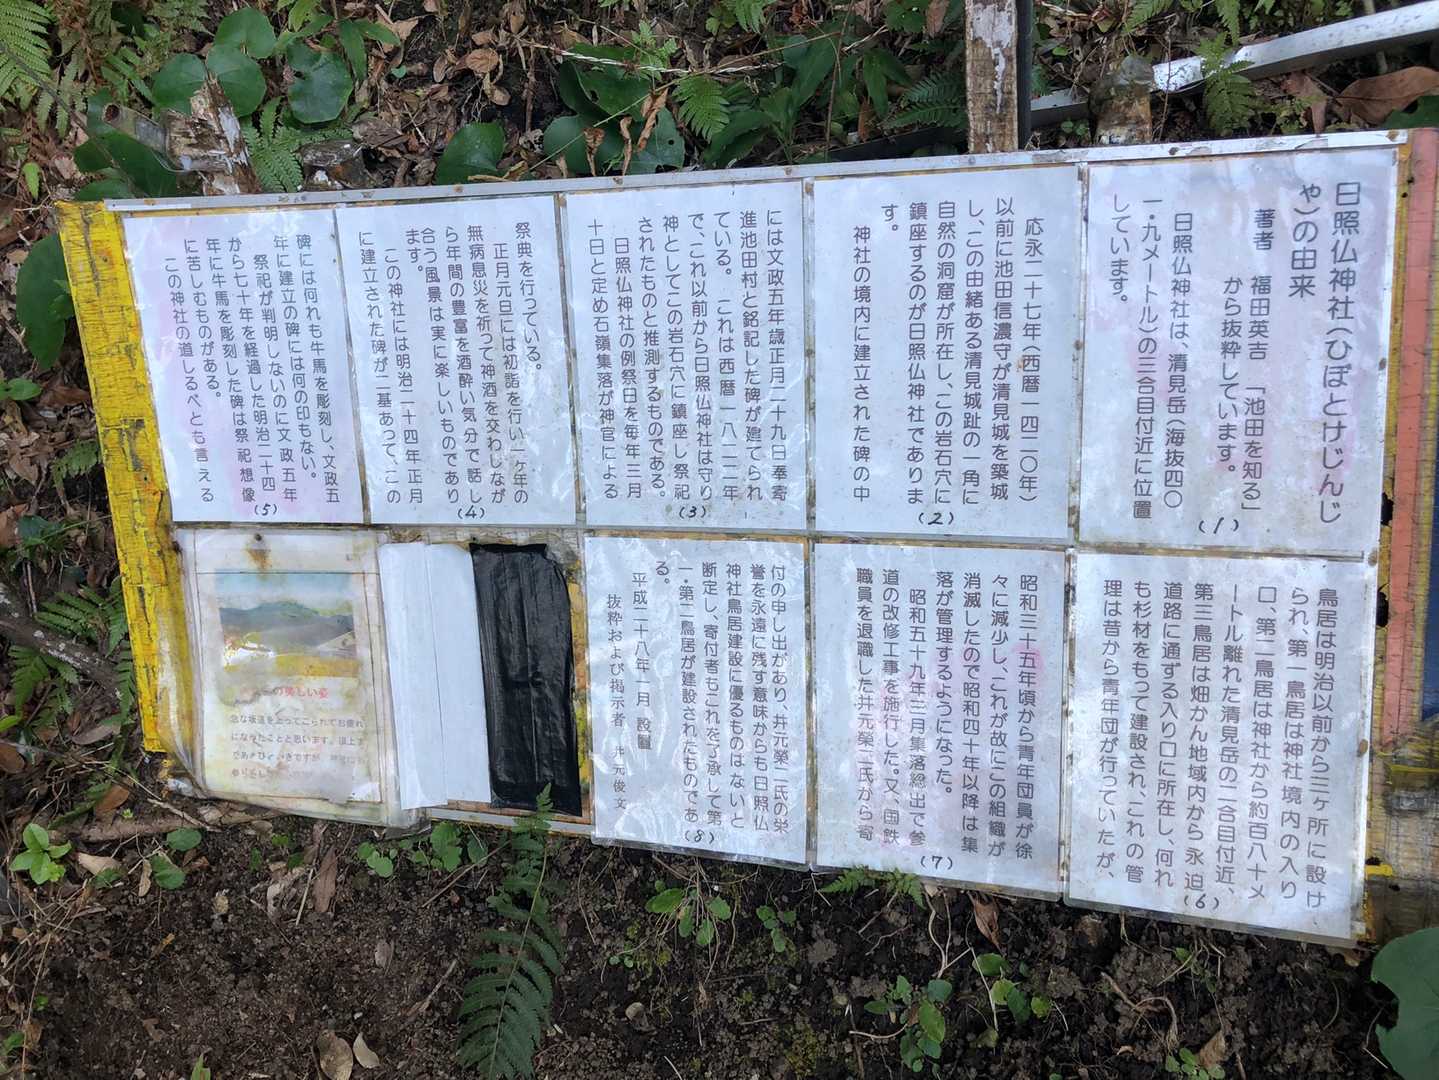 日照仏神社(ひぼとけじんじ
ゃ)の由来
著者 福田英吉 「池田を知る」
から抜粋しています。
日照仏神社は、清見岳(海抜四〇
一・九メートル)の三合目付近に位置
しています。
(1)
応永二十七年(西暦一四二〇年)
以前に池田信濃守が清見城を築城
し、この由緒ある清見城趾の一角に
自然の洞窟が所在し、この岩石穴に
鎮座するのが日照仏神社でありま
す。
神社の境内に建立された碑の中
(2)
には文政五年歳正月二十九日奉寄
進池田村と銘記した碑が建てられ
ている。 これは西暦一八二二年
で、これ以前から日照仏神社は守り
神としてこの岩石穴に鎮座し祭祀
されたものと推測するものである。
日照仏神社の例祭日を毎年三月
十日と定め石嶺集落が神官による
(3)
祭典を行っている。
正月元旦には初詣を行い一ヶ年の
無病息災を祈って神酒を交わしなが
ら年間の豊富を酒酔い気分で話し
合う風景は実に楽しいものであり
ます。
この神社には明治二十四年正月
に建立された碑が二基あって、この
(4)
碑には何れも牛馬を彫刻し、文政五
年に建立の碑には何の印もない。
祭祀が判明しないのに文政五年
から七十年を経過した明治二十四
年に牛馬を彫刻した碑は祭祀想像
に苦しむものがある。
この神社の道しるべとも言える
(5)
鳥居は明治以前から三ヶ所に設け
られ、第一鳥居は神社境内の入り
口、第二鳥居は神社から約百八十メ
ートル離れた清見岳の二合目付近、
第三鳥居は畑かん地域内から永迫
道路に通ずる入り口に所在し、何れ
も杉材をもって建設され、これの管
理は昔から青年団が行っていたが、
(6)
昭和三十五年頃から青年団員が徐
々に減少し、これが故にこの組織が
消滅したので昭和四十年以降は集
落が管理するようになった。
昭和五十九年三月集落総出で参
道の改修工事を施行した。又、国鉄
職員を退職した井元榮二氏から寄
(7)
付の申し出があり、井元榮二氏の栄
誉を永遠に残す意味からも日照仏
神社鳥居建設に優るものはないと
断定し、寄付者もこれを了承して第
一・第二鳥居が建設されたものであ
る。
平成二十八年一月 設置
抜粋および掲示者 井元俊文
(8)
の美しい姿
急な坂道を上ってこられてお疲れ
になったことと思います。頂上ま